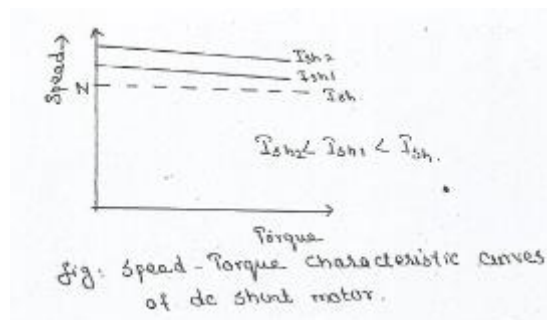 Speed →
Ish2
Ish1
N
Ish.
Ish2 < Ish1 < Ish.
Torque
fig: Speed - Torque characteristic curves
of dc shunt motor.